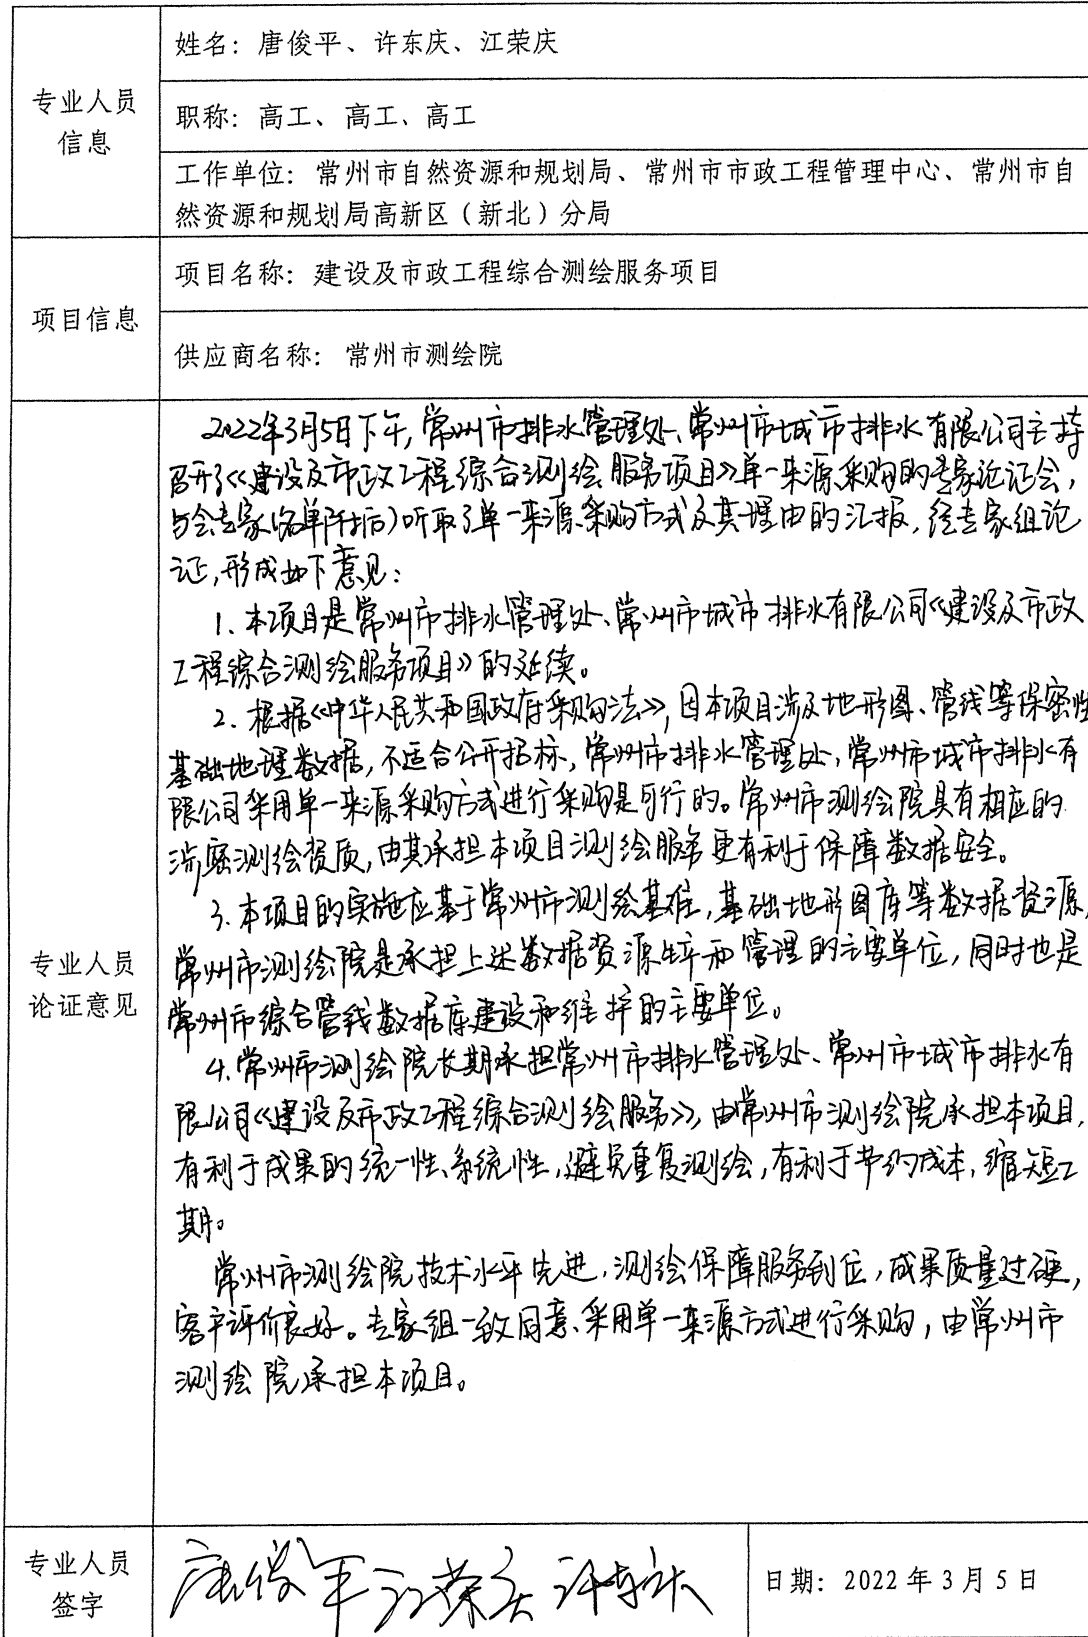 专业人员
信息
姓名：唐俊平、许东庆、江荣庆
职称：高工、高工、高工
工作单位：常州市自然资源和规划局、常州市市政工程管理中心、常州市自
然资源和规划局高新区（新北）分局
项目信息
项目名称：建设及市政工程综合测绘服务项目
供应商名称：常州市测绘院
专业人员
论证意见
2022年3月5日下午，常州市排水管理处、常州市城市排水有限公司主持
召开了《建设及市政工程综合测绘服务项目》单一来源采购的专家论证会，
与会专家（名单附后）听取了单一来源采购方式及其理由的汇报，经专家组论
证，形成如下意见：
1. 本项目是常州市排水管理处、常州市城市排水有限公司《建设及市政
工程综合测绘服务项目》的延续。
2. 根据《中华人民共和国政府采购法》，因本项目涉及地形图、管线等保密性
基础地理数据，不适合公开招标，常州市排水管理处，常州市城市排水有
限公司采用单一来源采购方式进行采购是可行的。常州市测绘院具有相应的
涉密测绘资质，由其承担本项目测绘服务更有利于保障数据安全。
3. 本项目的实施应基于常州市测绘基准，基础地形图库等数据资源，
常州市测绘院是承担上述数据资源生产和管理的主要单位，同时也是
常州市综合管线数据库建设和维护的主要单位。
4. 常州市测绘院长期承担常州市排水管理处、常州市城市排水有
限公司《建设及市政工程综合测绘服务》，由常州市测绘院承担本项目，
有利于成果的统一性、系统性，避免重复测绘，有利于节约成本，缩短工
期。
常州市测绘院技术水平先进，测绘保障服务到位，成果质量过硬，
客户评价良好。专家组一致同意采用单一来源方式进行采购，由常州市
测绘院承担本项目。
专业人员
签字
唐俊平 江荣庆 许东庆
日期：2022年3月5日